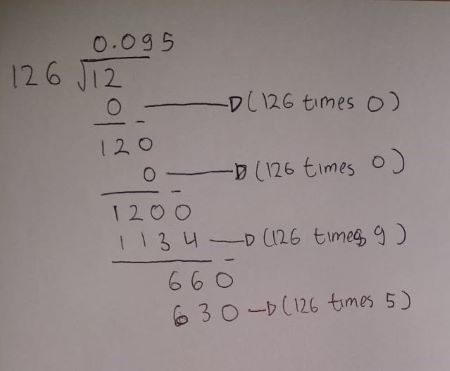 0.095
126 √12
0 → (126 times 0)
120
0 → (126 times 0)
1200
1134 → (126 times 9)
660
630 → (126 times 5)